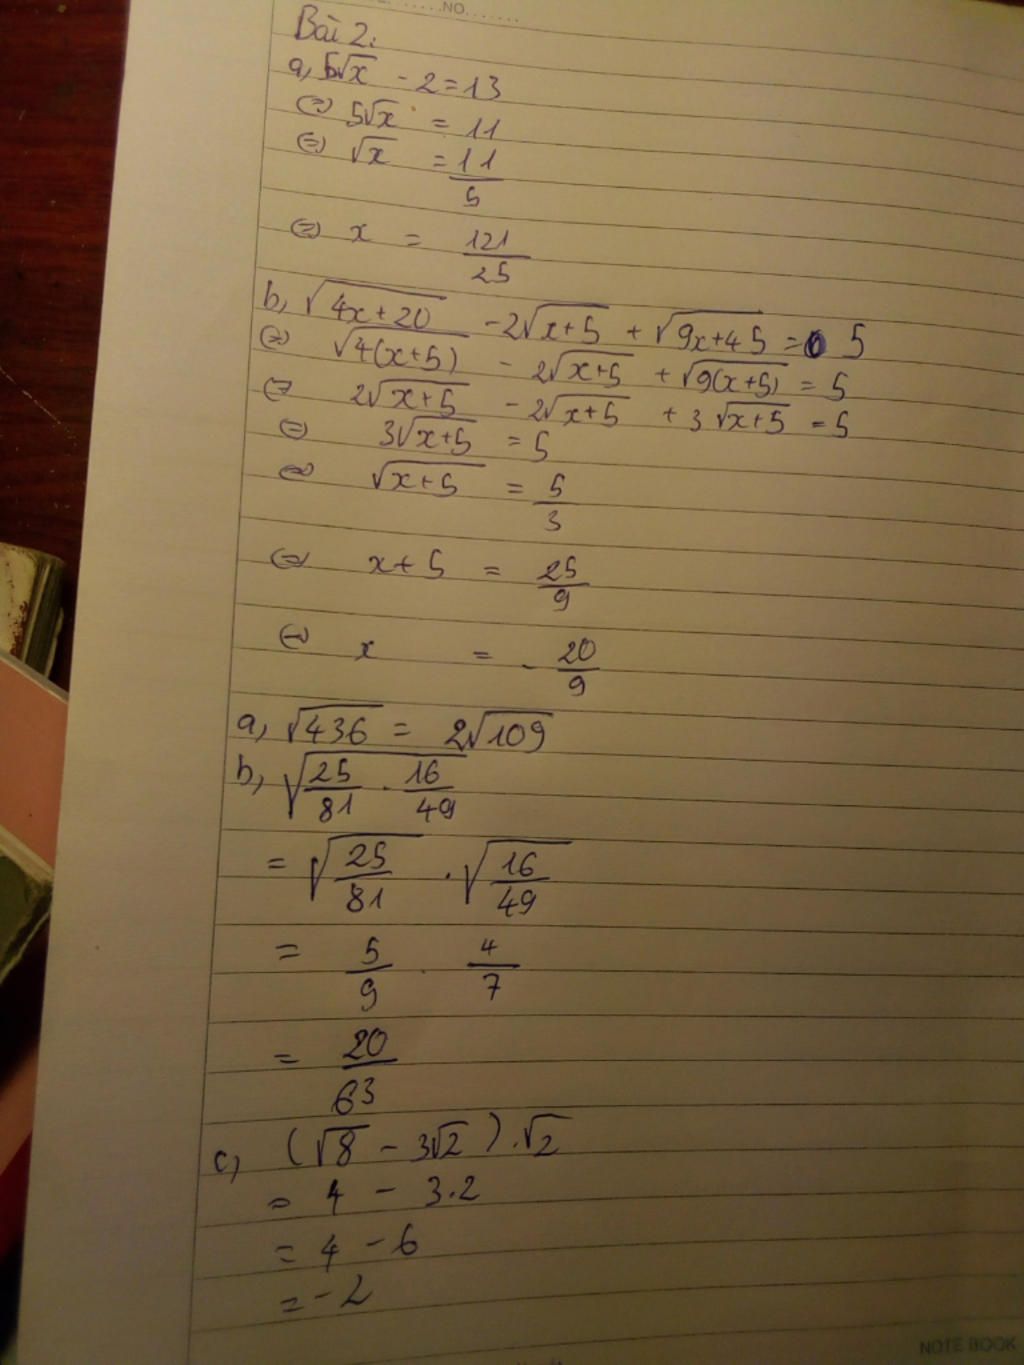 NO.
Bài 2:
a, 5√x - 2 = 13
⇔ 5√x = 11
⇔ √x = 11/5
⇔ x = 121/25
b, √(4x+20) - 2√(x+5) + √(9x+45) = 5
⇔ √(4(x+5)) - 2√(x+5) + √(9(x+5)) = 5
⇔ 2√(x+5) - 2√(x+5) + 3√(x+5) = 5
⇔ 3√(x+5) = 5
⇔ √(x+5) = 5/3
⇔ x+5 = 25/9
⇔ x = -20/9
a, √436 = 2√109
b, √(25/81 . 16/49)
= √(25/81) . √(16/49)
= 5/9 . 4/7
= 20/63
c, (√8 - 3√2).√2
= 4 - 3.2
= 4 - 6
= -2
NOTE BOOK